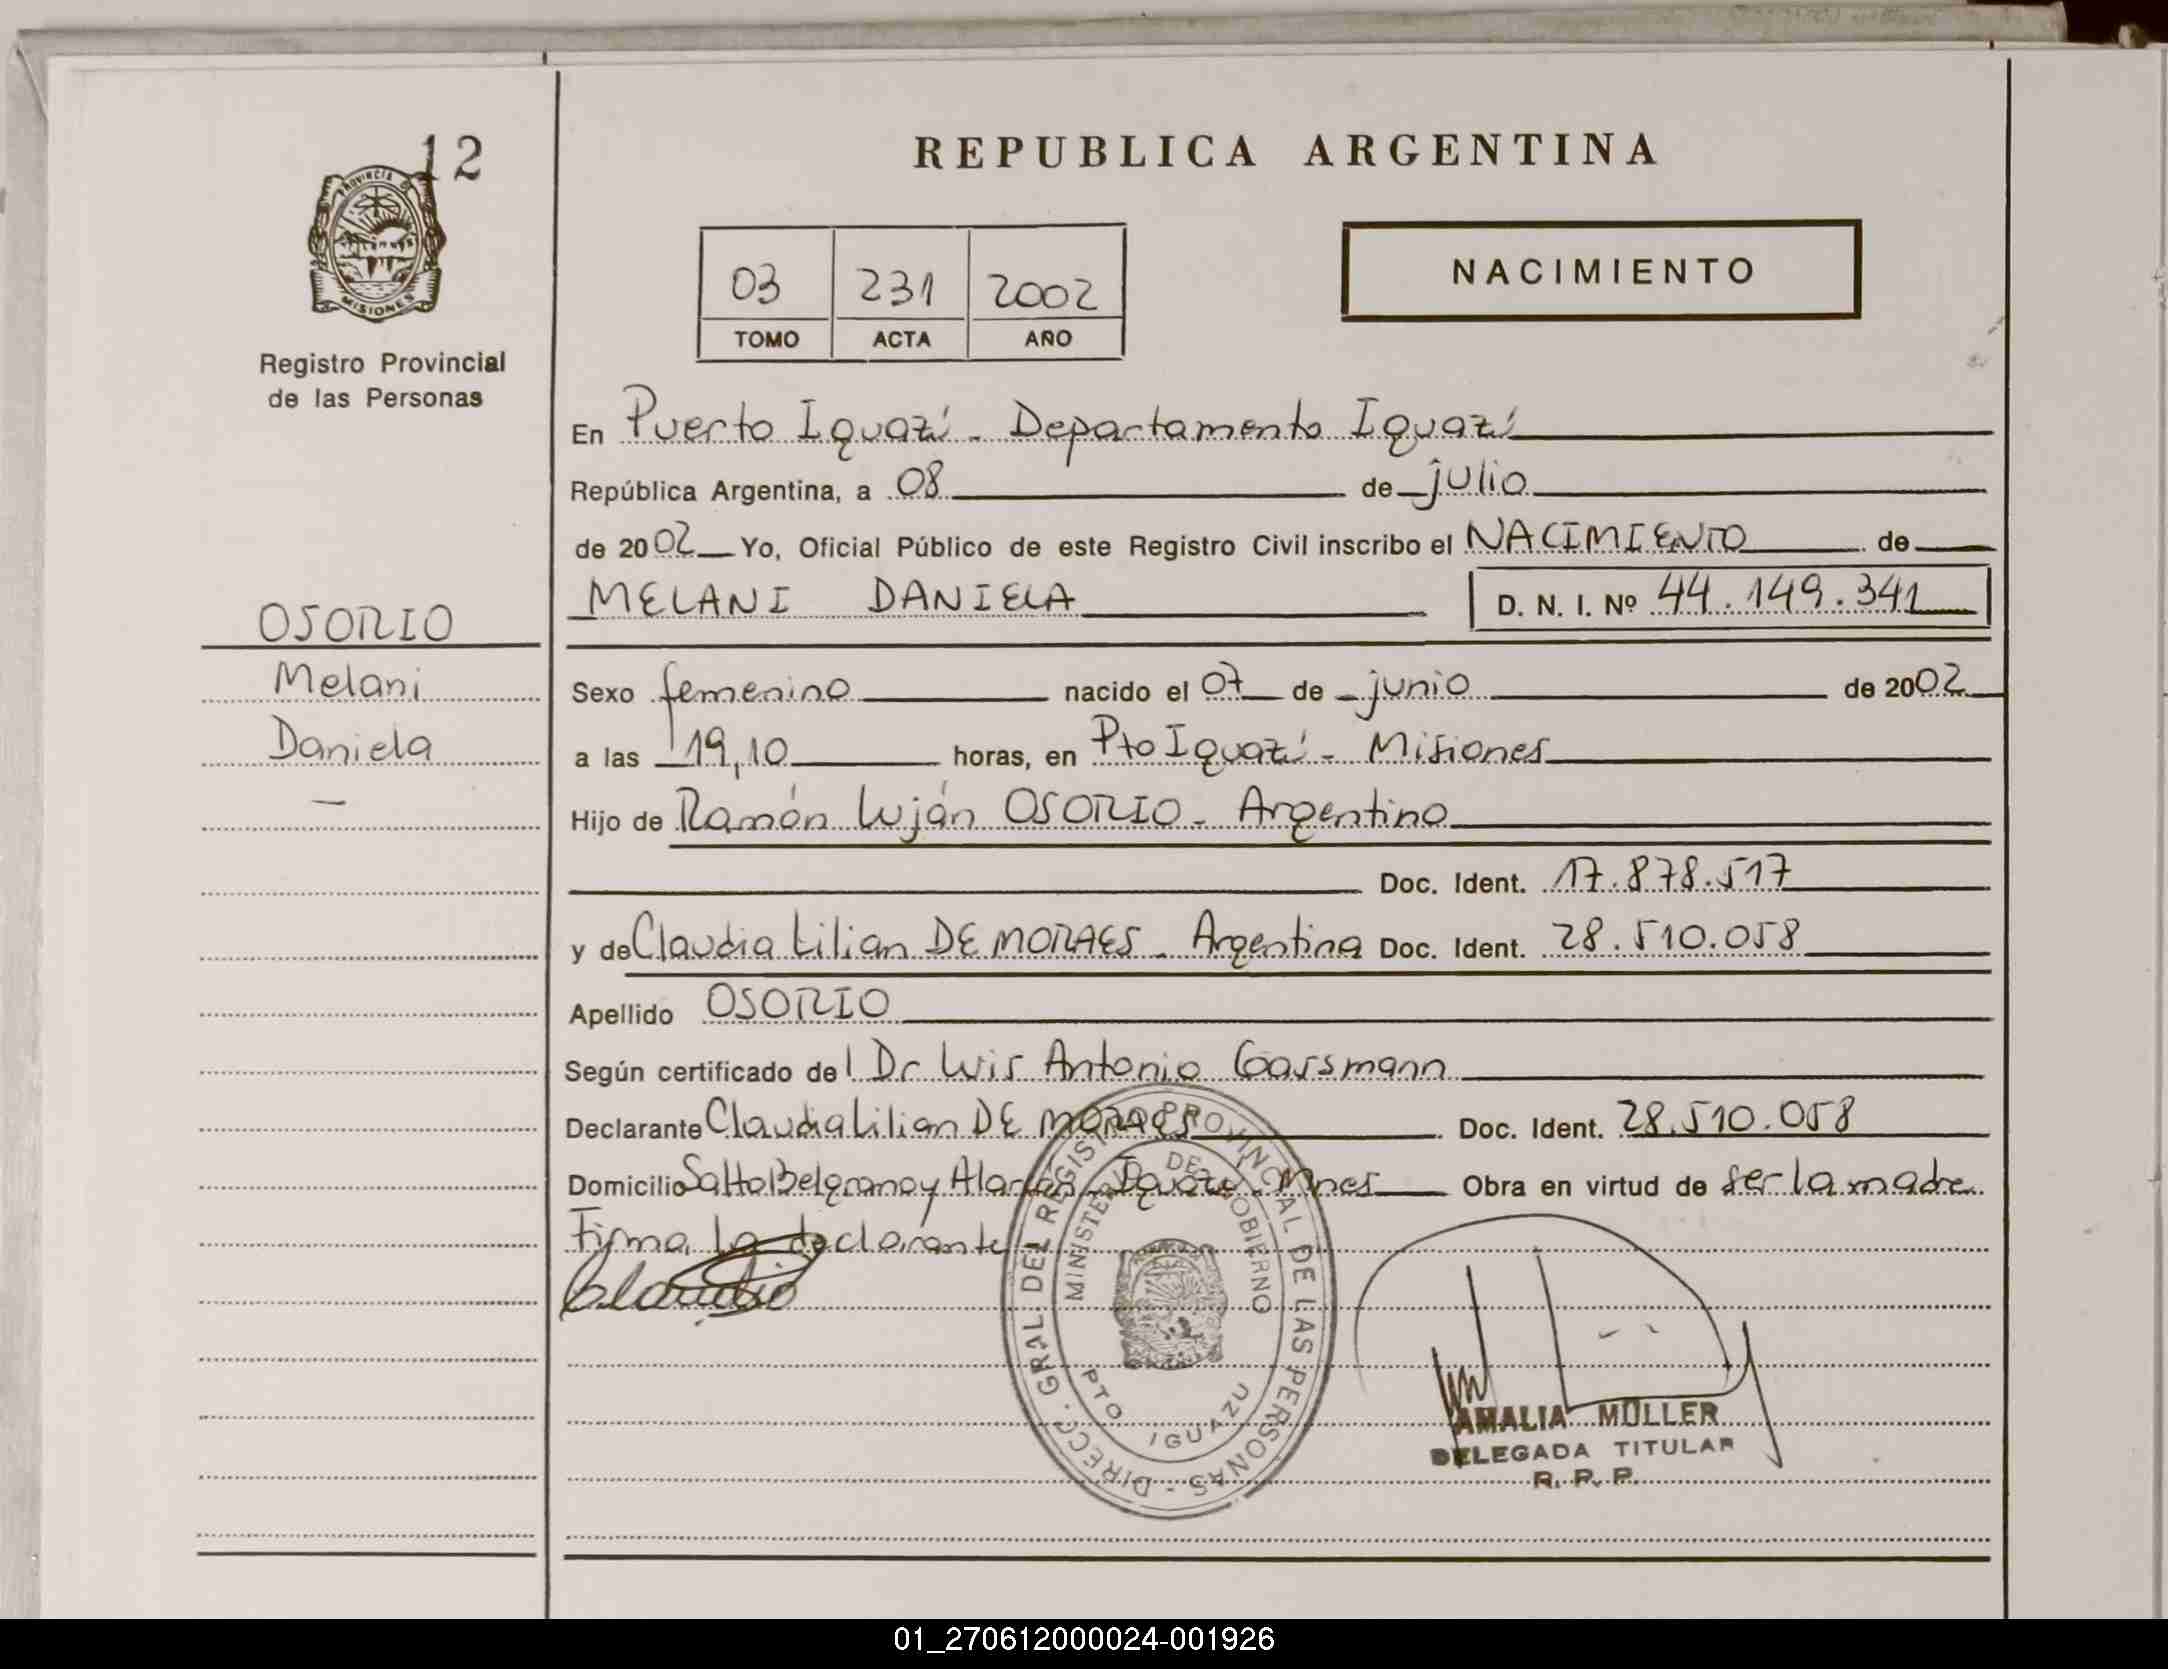 12
PROVINCIA DE
MISIONES
Registro Provincial
de las Personas
OSORIO
Melani
Daniela
—
REPUBLICA ARGENTINA
03 231 2002
TOMO ACTA AÑO
NACIMIENTO
En Puerto Iguazú - Departamento Iguazú
República Argentina, a 08 de julio
de 2002 Yo, Oficial Público de este Registro Civil inscribo el NACIMIENTO de
MELANI DANIELA D. N. I. Nº 44.149.341
Sexo femenino nacido el 07 de junio de 2002
a las 19,10 horas, en Pto Iguazú - Misiones
Hijo de Ramón Luján OSORIO - Argentino
Doc. Ident. 17.878.517
y de Claudia Lilian DE MORAES - Argentina Doc. Ident. 28.510.058
Apellido OSORIO
Según certificado del Dr Luis Antonio Gassmann
Declarante Claudia Lilian DE MORAES Doc. Ident. 28.510.058
Domicilio Salto Belgrano y - Iguazú - Mnes Obra en virtud de ser la madre
Firma la declarante
Claudia
DIRECC. GRAL. DEL REGISTRO PROVINCIAL DE LAS PERSONAS -
MINISTERIO DE GOBIERNO
PTO IGUAZU
AMALIA MULLER
DELEGADA TITULAR
R. P. P.
01_270612000024-001926